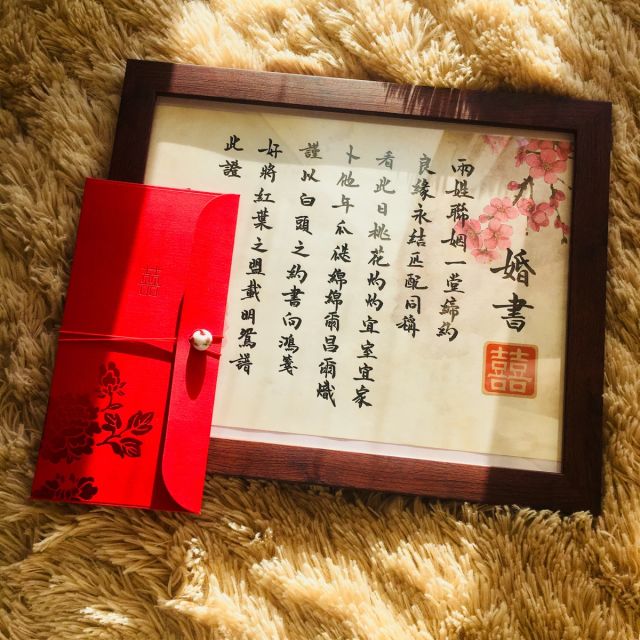 婚書
囍
兩姓聯姻一堂締約
良緣永結匹配同稱
看此日桃花灼灼宜室宜家
卜他年瓜瓞綿綿爾昌爾熾
謹以白頭之約書向鴻箋
好將紅葉之盟載明鴛譜
此證
囍